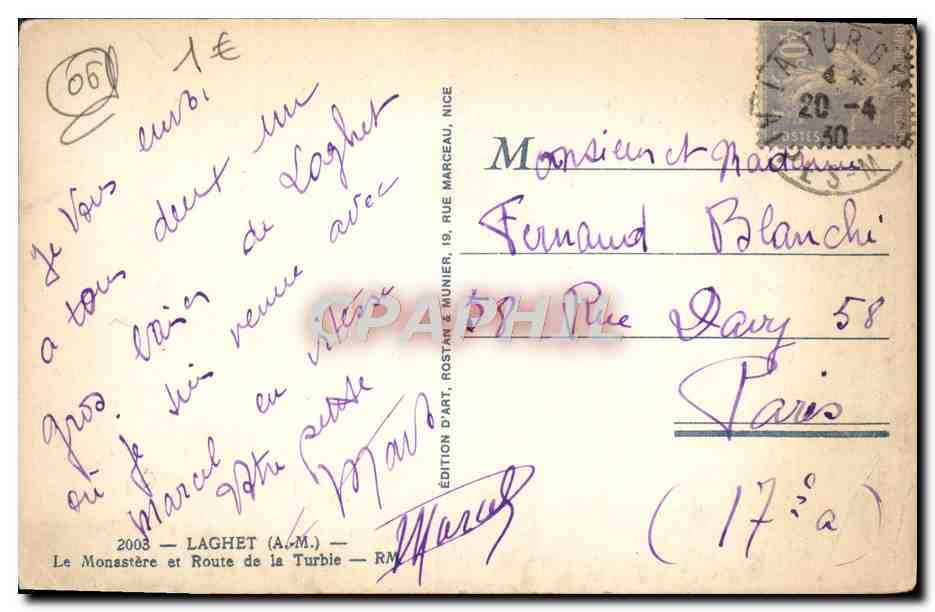 06
1 €
Je Vous envoi
a tous deux un
gros baiser de Laghet
où je suis venue avec
Marcel en
Votre petite
Marcel
2003 — LAGHET (A.-M.) —
Le Monastère et Route de la Turbie — RM
ÉDITION D'ART, ROSTAN & MUNIER, 19, RUE MARCEAU, NICE
CPAPHIL
LA TURBIE
20 -4
30
40
POSTES
Monsieur et Madame
Fernand Blanchi
58 Rue Davy 58
Paris
(17è a)